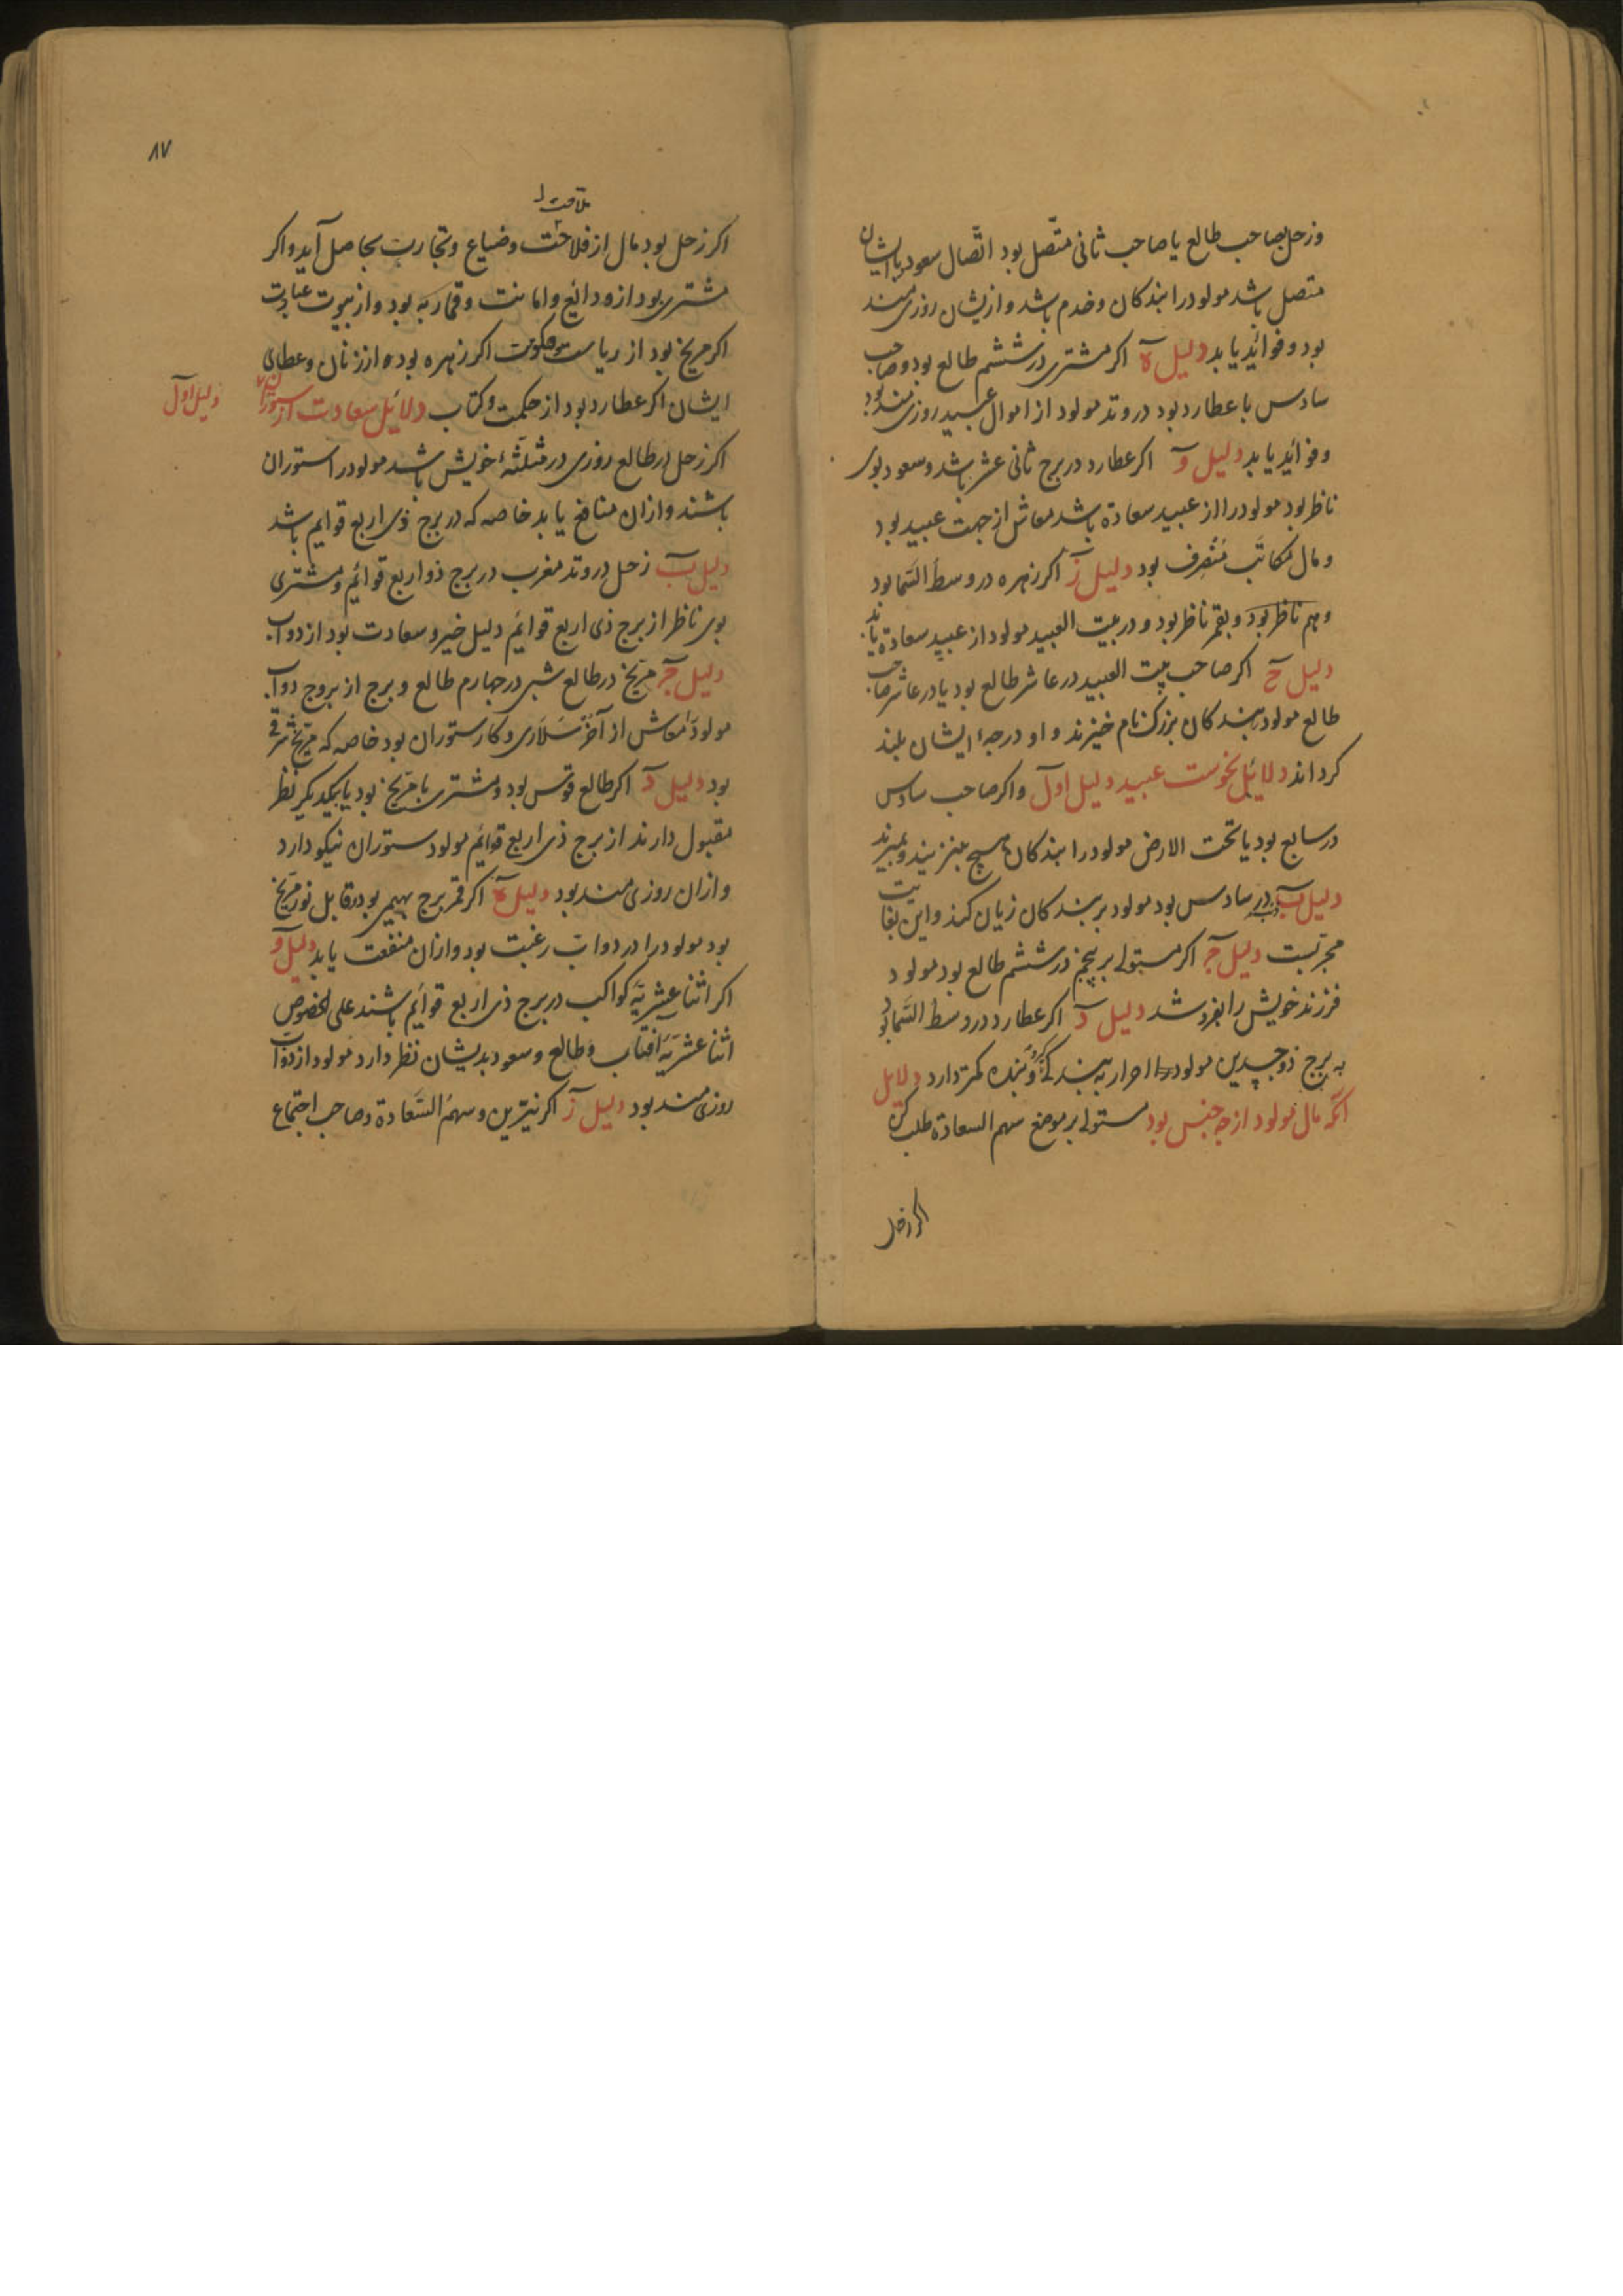 وزحل بصاحب طالع یا صاحب ثانی متّصل بود اتّصال سعود با ایشان
متصل باشد مولود را بندکان وخدم باشد وازیشان روزی مند
بود وفوائد یابد دلیل ه اکر مشتری در ششم طالع بود وصاحب
سادس با عطارد بود در وتد مولود از اموال عبید روزی مند بود
وفوائد یابد دلیل و اکر عطارد در برج ثانی عشر باشد وسعود بوی
ناظر بود مولود را از عبید سعادة باشد معاش از جهت عبید بود
ومال مکاتب متصرف بود دلیل ز اکر زهره در وسط السّما بود
وبهم ناظر بود وبقمر ناظر بود ودر بیت العبید مولود از عبید سعادة یابد
دلیل ح اکر صاحب بیت العبید در عاشر طالع بود یا در عاشر صاحب
طالع مولود را بندکان بزرک نام خیزند واو درجهٔ ایشان بلند
کرداند دلائل نحوست عبید دلیل اول واکر صاحب سادس
در سابع بود یا تحت الارض مولود را بندکان هیچ نزیند وبمیرند
دلیل ب ذنب در سادس بود مولود بر بندکان زیان کند واین بغایت
مجربست دلیل ج اکر مستولی بر پنجم در ششم طالع بود مولود
فرزند خویش را بفروشد دلیل د اکر عطارد در وسط السّما بود
به برج ذو جسدین مولود را احرار به بندکی کیرد وبنده کمتر دارد دلایل
آنکه مال مولود از چه جنس بود مستولی بر موضع سهم السعادة طلب کن
اکر زحل
۸۷
اکر زحل بود مال از فلاحت وضیاع وتجارت بحاصل آید واکر
مشتری بود از ودائع وامانت وقمار به بود واز بیوت عبادت
اکر مریخ بود از ریاست وحکومت اکر زهره بود واز زنان وعطای
ایشان اکر عطارد بود از حکمت وکتاب دلائل سعادت از ستوران
دلیل اول
اکر زحل در طالع روزی در مثلّثهٔ خویش باشد مولود را ستوران
باشند وازان منافع یابد خاصه که در برج ذی اربع قوایم باشد
دلیل ب زحل در وتد مغرب در برج ذو اربع قوائم ومشتری
بوی ناظر از برج ذی اربع قوائم دلیل خیر وسعادت بود از دواب
دلیل ج مریخ در طالع شبی در چهارم طالع وبرج از بروج دواب
مولود را معاش از آخر سلاری وکار ستوران بود خاصه که مریخ شرقی
بود دلیل د اکر طالع قوس بود ومشتری با مریخ بود یا بیکدیکر نظر
مقبول دارند از برج ذی اربع قوائم مولود ستوران نیکو دارد
وازان روزی مند بود دلیل ه اکر قمر برج بهیمی بود وقابل نور مریخ
بود مولود را در دواب رغبت بود وازان منفعت یابد دلیل و
اکر اثنا عشریّهٔ کواکب در برج ذی اربع قوائم باشند علی الخصوص
اثنا عشریّهٔ آفتاب وطالع وسعود بدیشان نظر دارد مولود از دواب
روزی مند بود دلیل ز اکر نیّرین وسهم السّعادة وصاحب اجتماع